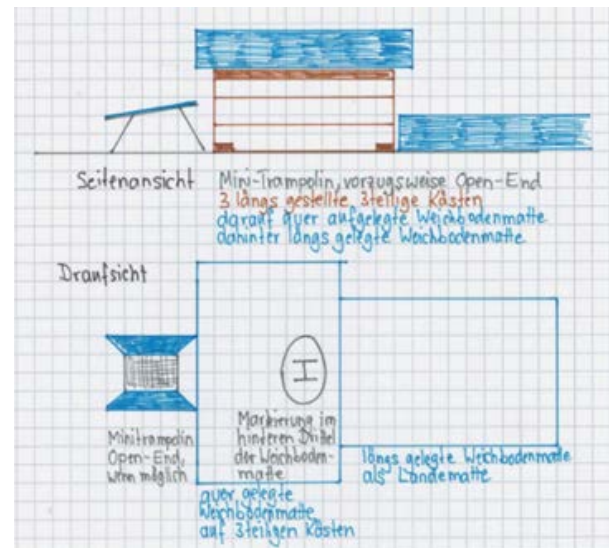 Seitenansicht
Mini-Trampolin, vorzugsweise Open-End
3 längs gestellte 3teilige Kästen
darauf quer aufgelegte Weichbodenmatte
dahinter längs gelegte Weichbodenmatte
Draufsicht
H
Minitrampolin
Open-End,
wenn möglich
Markierung im
hinteren Drittel
der Weichboden-
matte
längs gelegte Weichbodenmatte
als Landematte
quer gelegte
Weichbodenmatte
auf 3teiligen Kästen